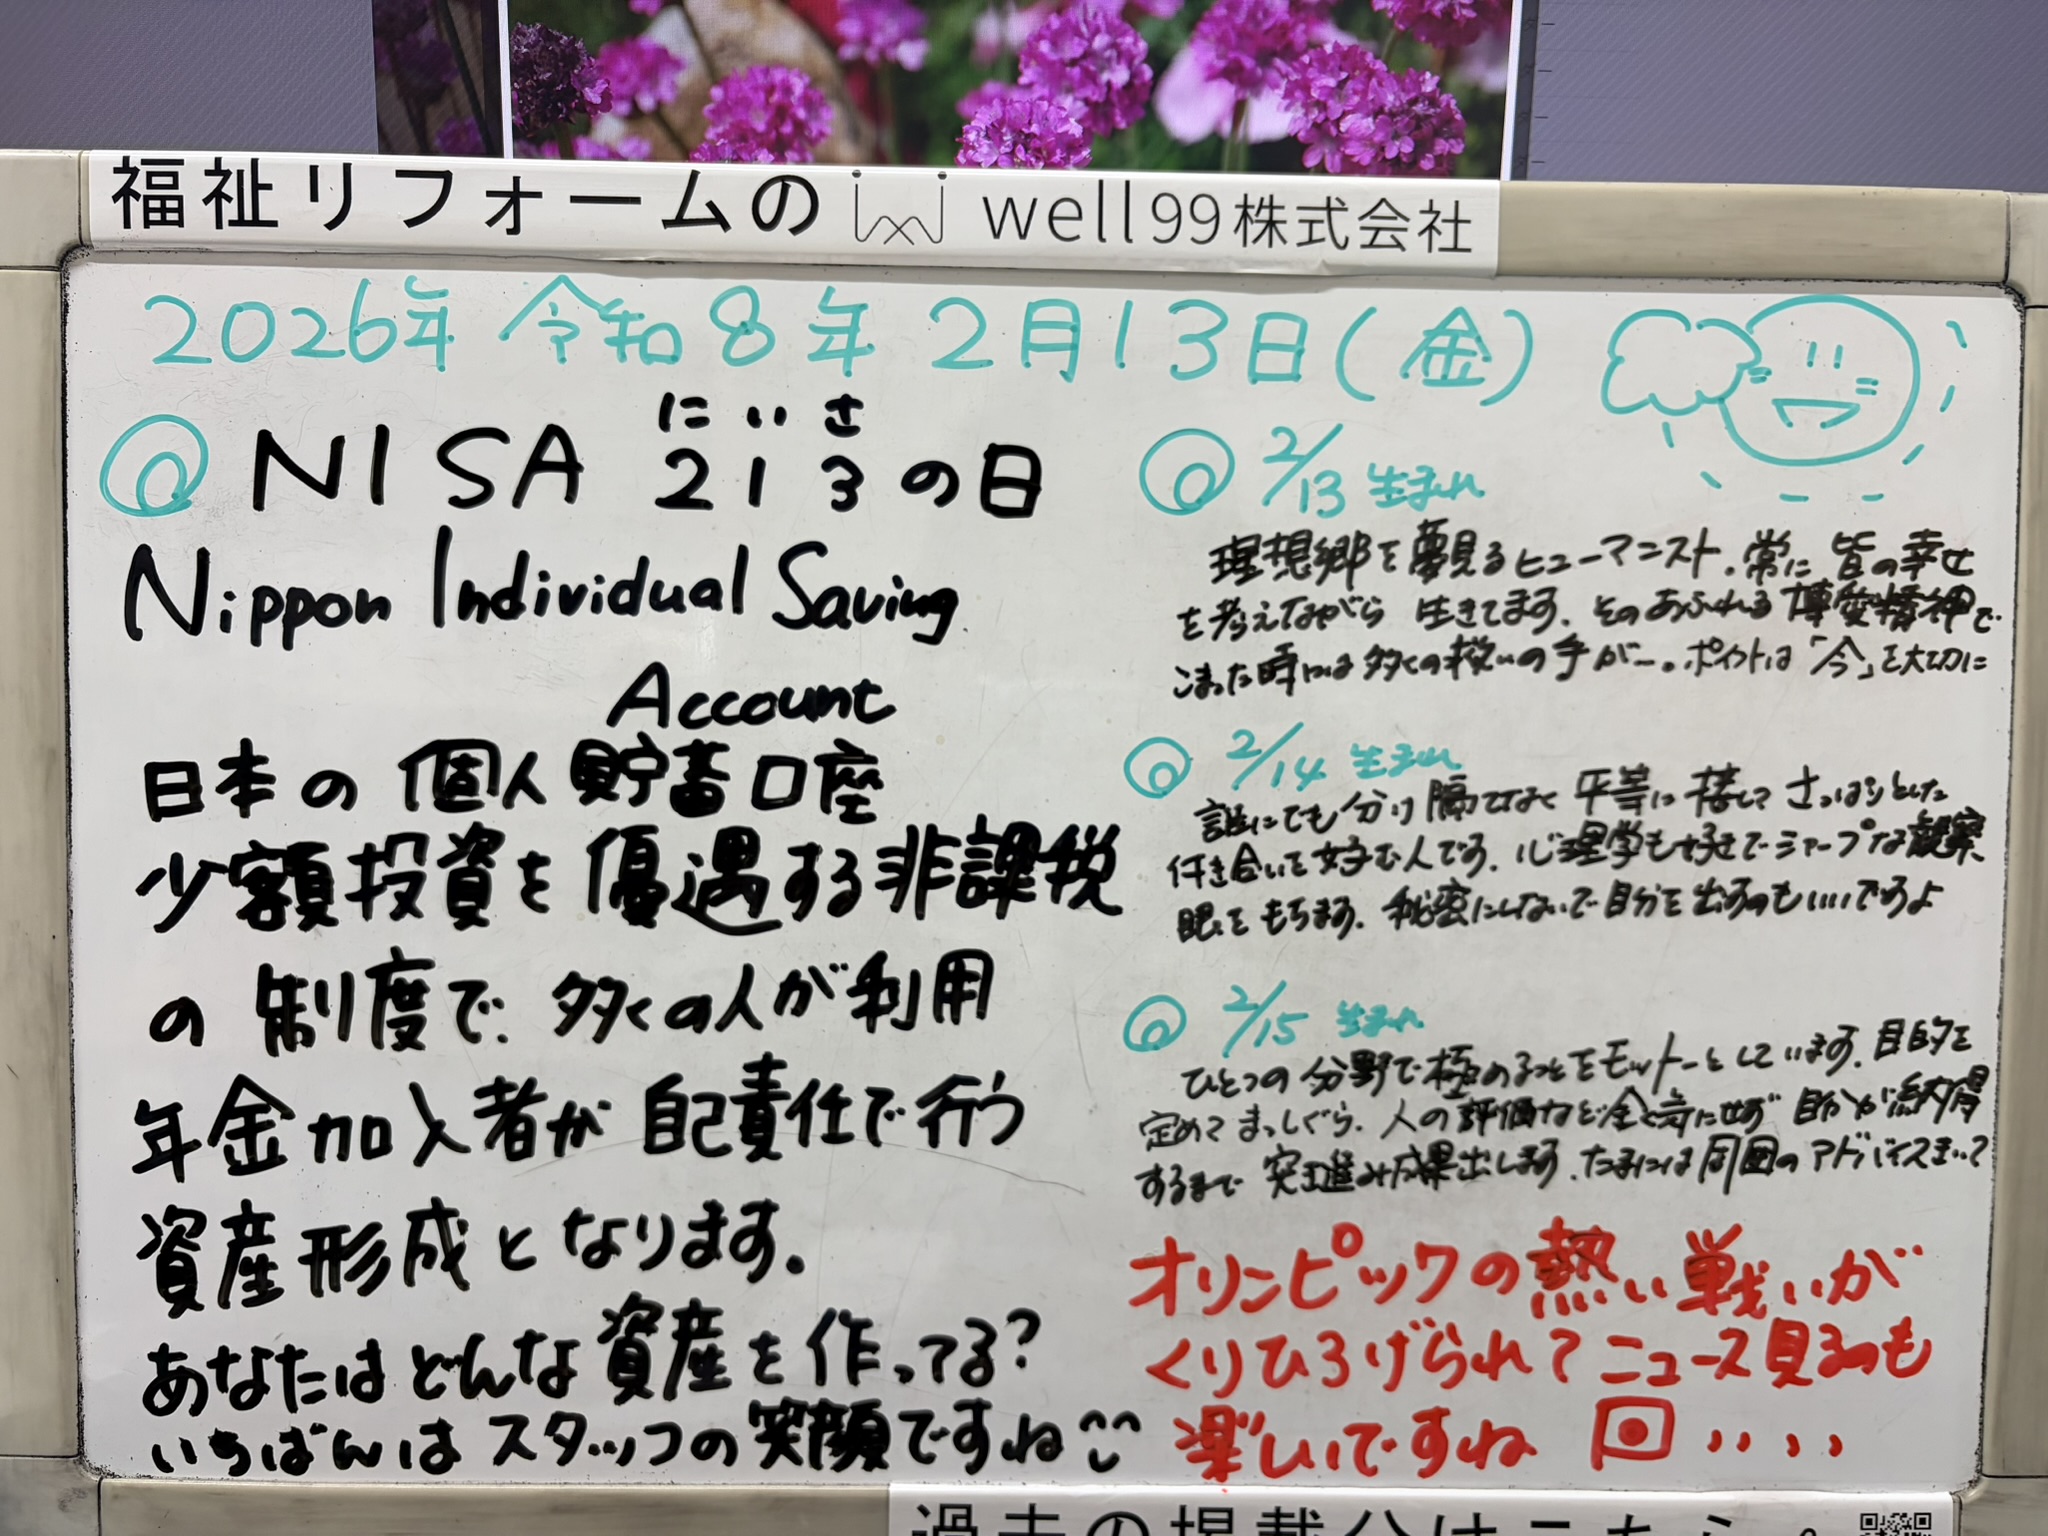 福祉リフォームの well99株式会社
2026年 令和8年 2月13日(金)
にいさ
NISA 213の日
Nippon Individual Saving
Account
日本の個人貯蓄口座
少額投資を優遇する非課税
の制度で、多くの人が利用
年金加入者が自己責任で行う
資産形成となります。
あなたはどんな資産を作ってる?
いちばんはスタッフの笑顔ですね
2/13 生まれ
理想郷を夢見るヒューマニスト。常に皆の幸せ
を考えながら生きてます。そのあふれる博愛精神で
こまった時には多くの救いの手が…。ポイントは「今」を大切に
2/14 生まれ
誰にでも分け隔てなく平等に接してさっぱりとした
付き合いを好む人です。心理学も好きでシャープな観察
眼をもちます。秘密にしないで自分を出すのもいいですよ
2/15 生まれ
ひとつの分野で極めることをモットーとしています。目的を
定めてまっしぐら。人の評価など全く気にせず自分が納得
するまで突き進み成果出します。たまには周囲のアドバイスきいて
オリンピックの熱い戦いが
くりひろげられてニュース見るのも
楽しいですね
過去の掲載分はこちら